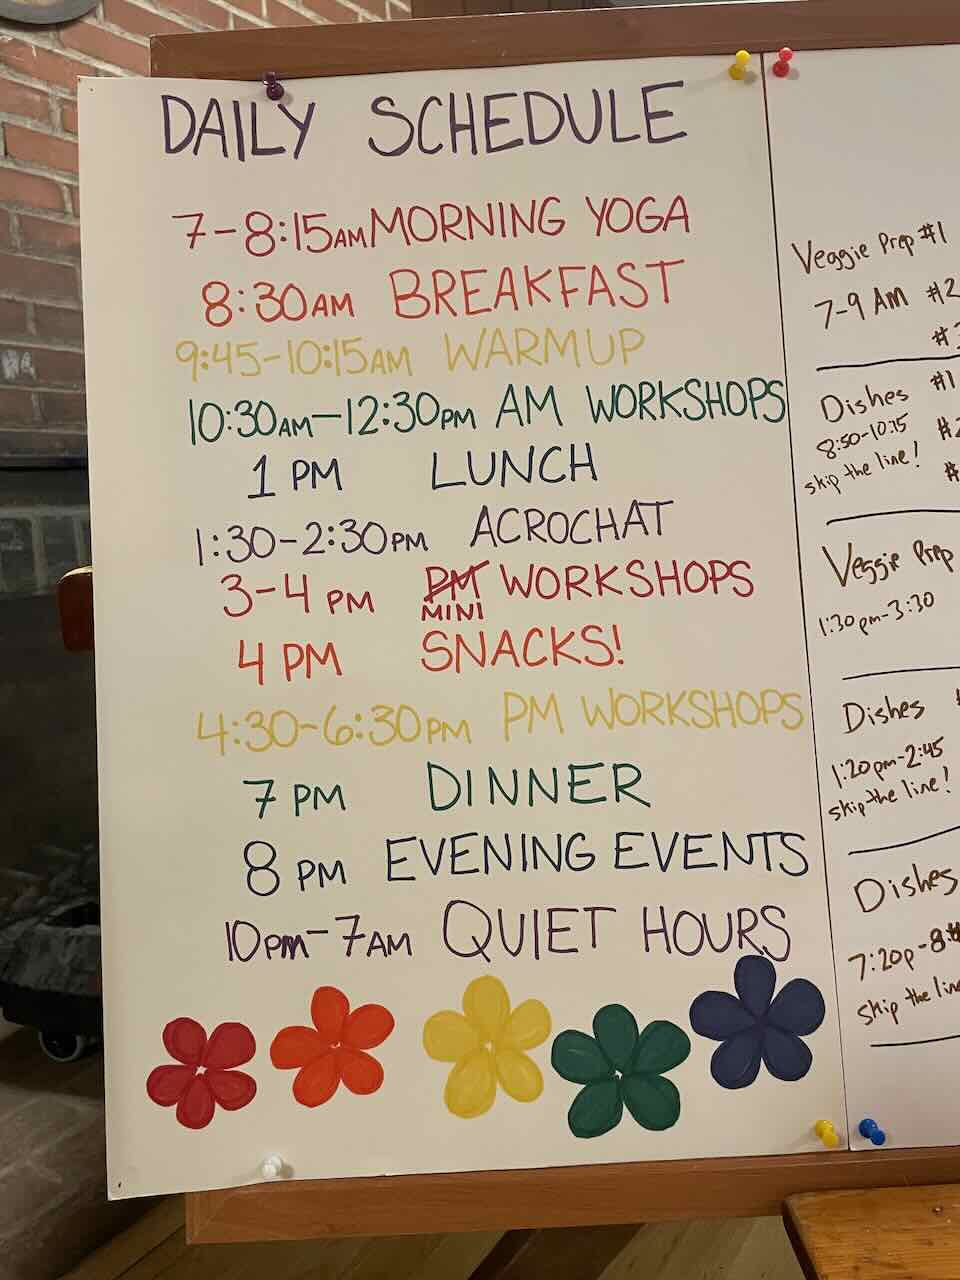 DAILY SCHEDULE
7-8:15AM MORNING YOGA
8:30AM BREAKFAST
9:45-10:15AM WARMUP
10:30AM-12:30PM AM WORKSHOPS
1 PM LUNCH
1:30-2:30PM ACROCHAT
3-4 PM PM WORKSHOPS
MINI
4 PM SNACKS!
4:30-6:30PM PM WORKSHOPS
7 PM DINNER
8 PM EVENING EVENTS
10pm-7AM QUIET HOURS
Veggie Prep #1
7-9 AM #2
#3
Dishes #1
8:50-10:15 #2
skip the line! #
Veggie Prep
1:30pm-3:30
Dishes
1:20pm-2:45
skip the line!
Dishes
7:20p-8
skip the line